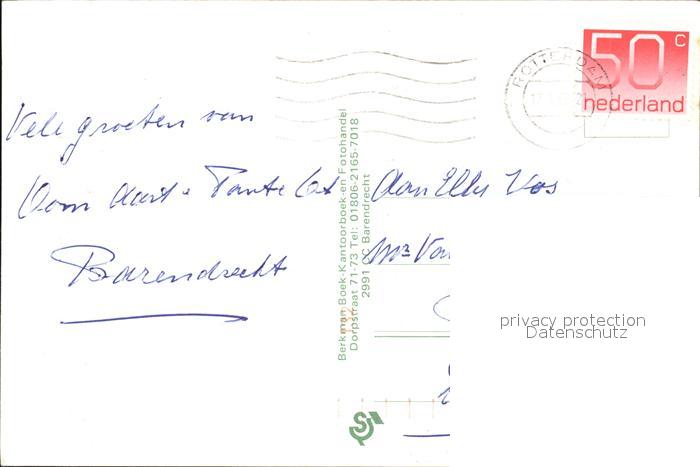 Vele groeten van
Oom Aart & Tante Cat
Barendrecht
Berkman Boek-Kantoorboek-en Fotohandel
Dorpstraat 71-73 Tel: 01806-2165-7018
2991 Barendrecht
Aan Elly Vos
50 C
nederland
ROTTERDAM
privacy protection
Datenschutz